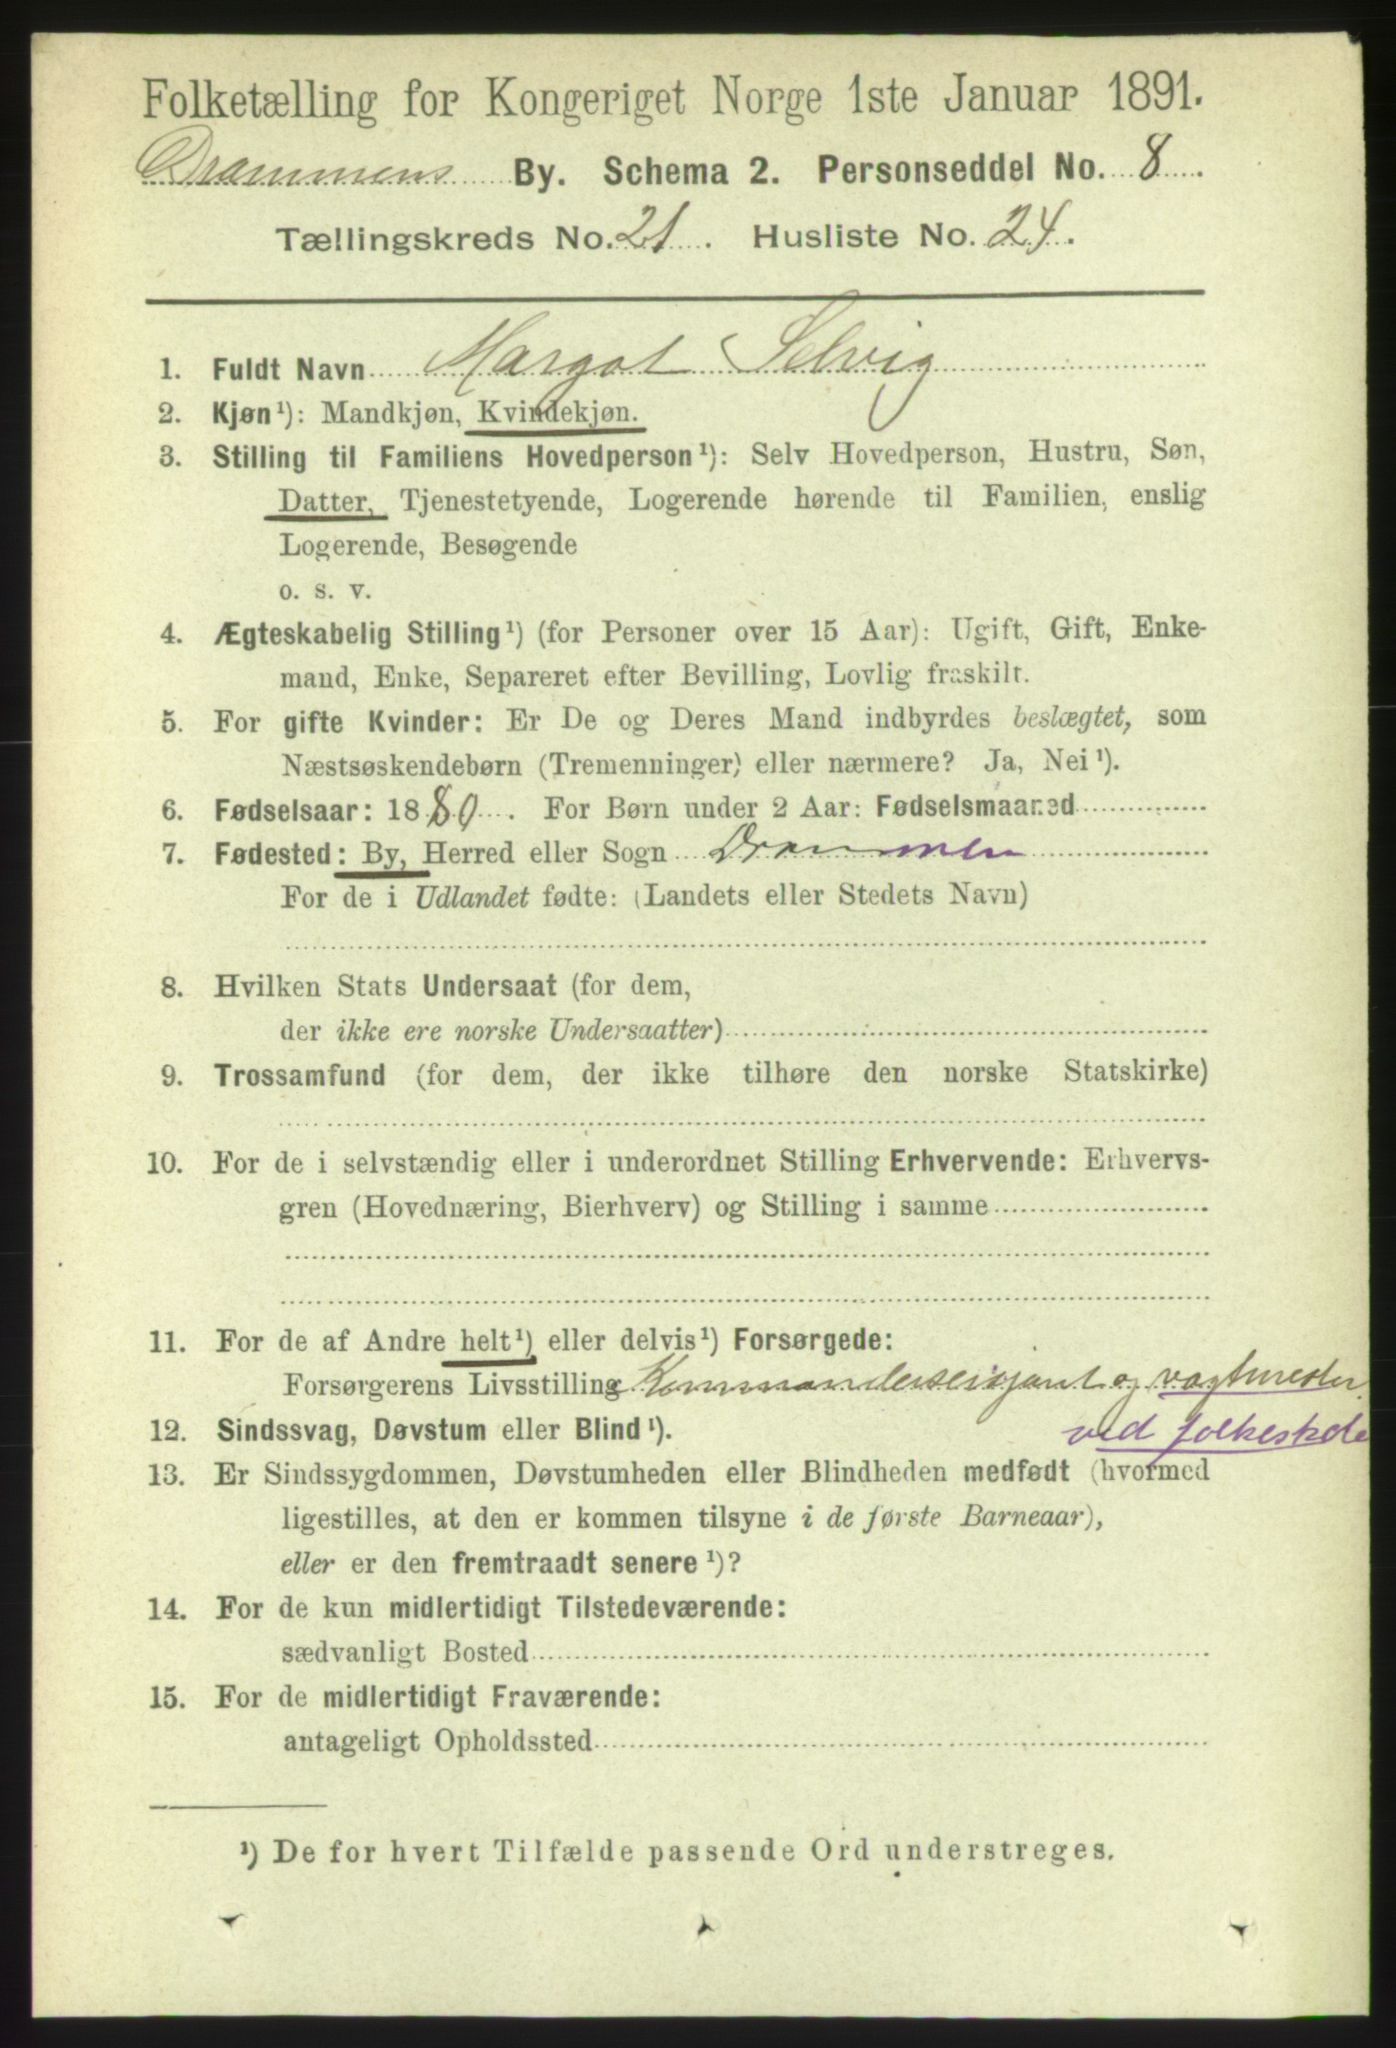 Folketælling for Kongeriget Norge 1ste Januar 1891.
Drammens By. Schema 2. Personseddel No. 8.
Tællingskreds No. 21. Husliste No. 24.
1. Fuldt Navn Margot Selvig
2. Kjøn¹): Mandkjøn, Kvindekjøn.
3. Stilling til Familiens Hovedperson¹): Selv Hovedperson, Hustru, Søn,
Datter, Tjenestetyende, Logerende hørende til Familien, enslig
Logerende, Besøgende
o. s. v.
4. Ægteskabelig Stilling¹) (for Personer over 15 Aar): Ugift, Gift, Enke-
mand, Enke, Separeret efter Bevilling, Lovlig fraskilt.
5. For gifte Kvinder: Er De og Deres Mand indbyrdes beslægtet, som
Næstsøskendebørn (Tremenninger) eller nærmere? Ja, Nei¹).
6. Fødselsaar: 1880. For Børn under 2 Aar: Fødselsmaaned
7. Fødested: By, Herred eller Sogn Drammen
For de i Udlandet fødte: (Landets eller Stedets Navn)
8. Hvilken Stats Undersaat (for dem,
der ikke ere norske Undersaatter)
9. Trossamfund (for dem, der ikke tilhøre den norske Statskirke)
10. For de i selvstændig eller i underordnet Stilling Erhvervende: Erhvervs-
gren (Hovednæring, Bierhverv) og Stilling i samme
11. For de af Andre helt¹) eller delvis¹) Forsørgede:
Forsørgerens Livsstilling Kommandersersjant og vagtmester
ved folkeskole
12. Sindssvag, Døvstum eller Blind¹).
13. Er Sindssygdommen, Døvstumheden eller Blindheden medfødt (hvormed
ligestilles, at den er kommen tilsyne i de første Barneaar),
eller er den fremtraadt senere¹)?
14. For de kun midlertidigt Tilstedeværende:
sædvanligt Bosted
15. For de midlertidigt Fraværende:
antageligt Opholdssted
¹) De for hvert Tilfælde passende Ord understreges.